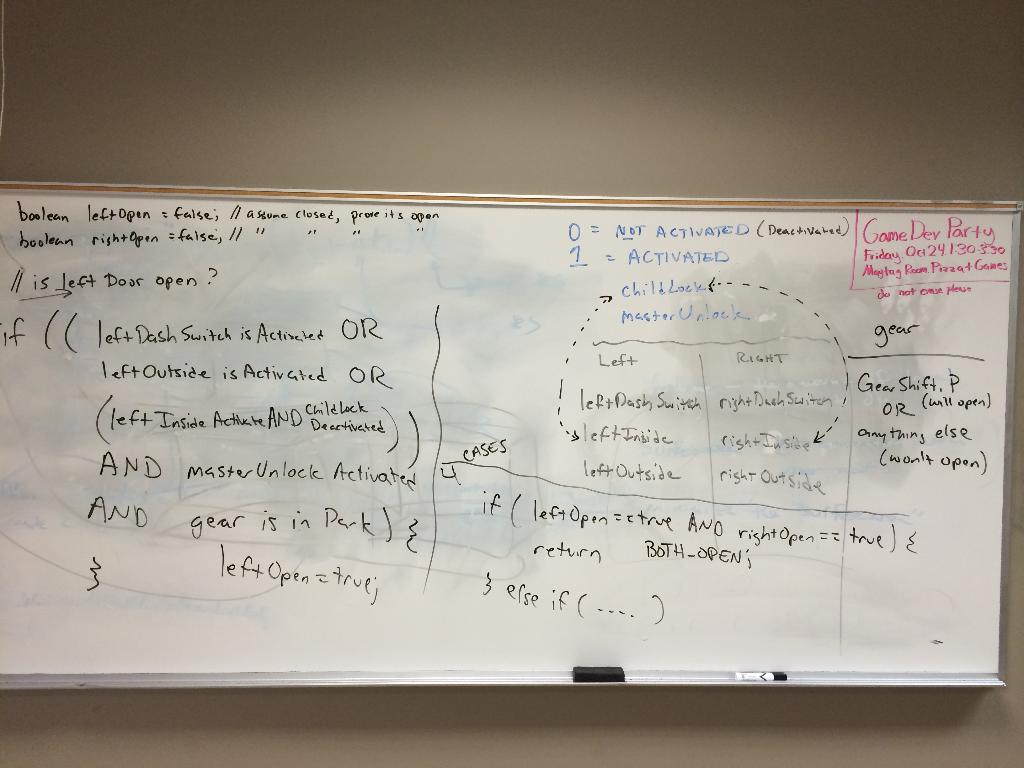 boolean leftOpen = false; // assume closed, prove its open
boolean rightOpen = false; // " " " "
// is left Door open ?
if ( ( leftDashSwitch is Activated OR
leftOutside is Activated OR
(left Inside Activate AND ChildLock
Deactivated) )
AND masterUnlock Activated
AND gear is in Park) {
leftOpen = true;
}
0 = NOT ACTIVATED (Deactivated)
1 = ACTIVATED
childLock
masterUnlock
Left RIGHT
leftDashSwitch rightDashSwitch
leftInside rightInside
leftOutside rightOutside
CASES
4
if ( leftOpen == true AND rightOpen == true) {
return BOTH_OPEN;
} else if ( ..... )
Game Dev Party
Friday Oct 24 1:30-3:30
Maytag Room. Pizza + Games
do not erase please
gear
GearShift. P
OR (will open)
anything else
(won't open)